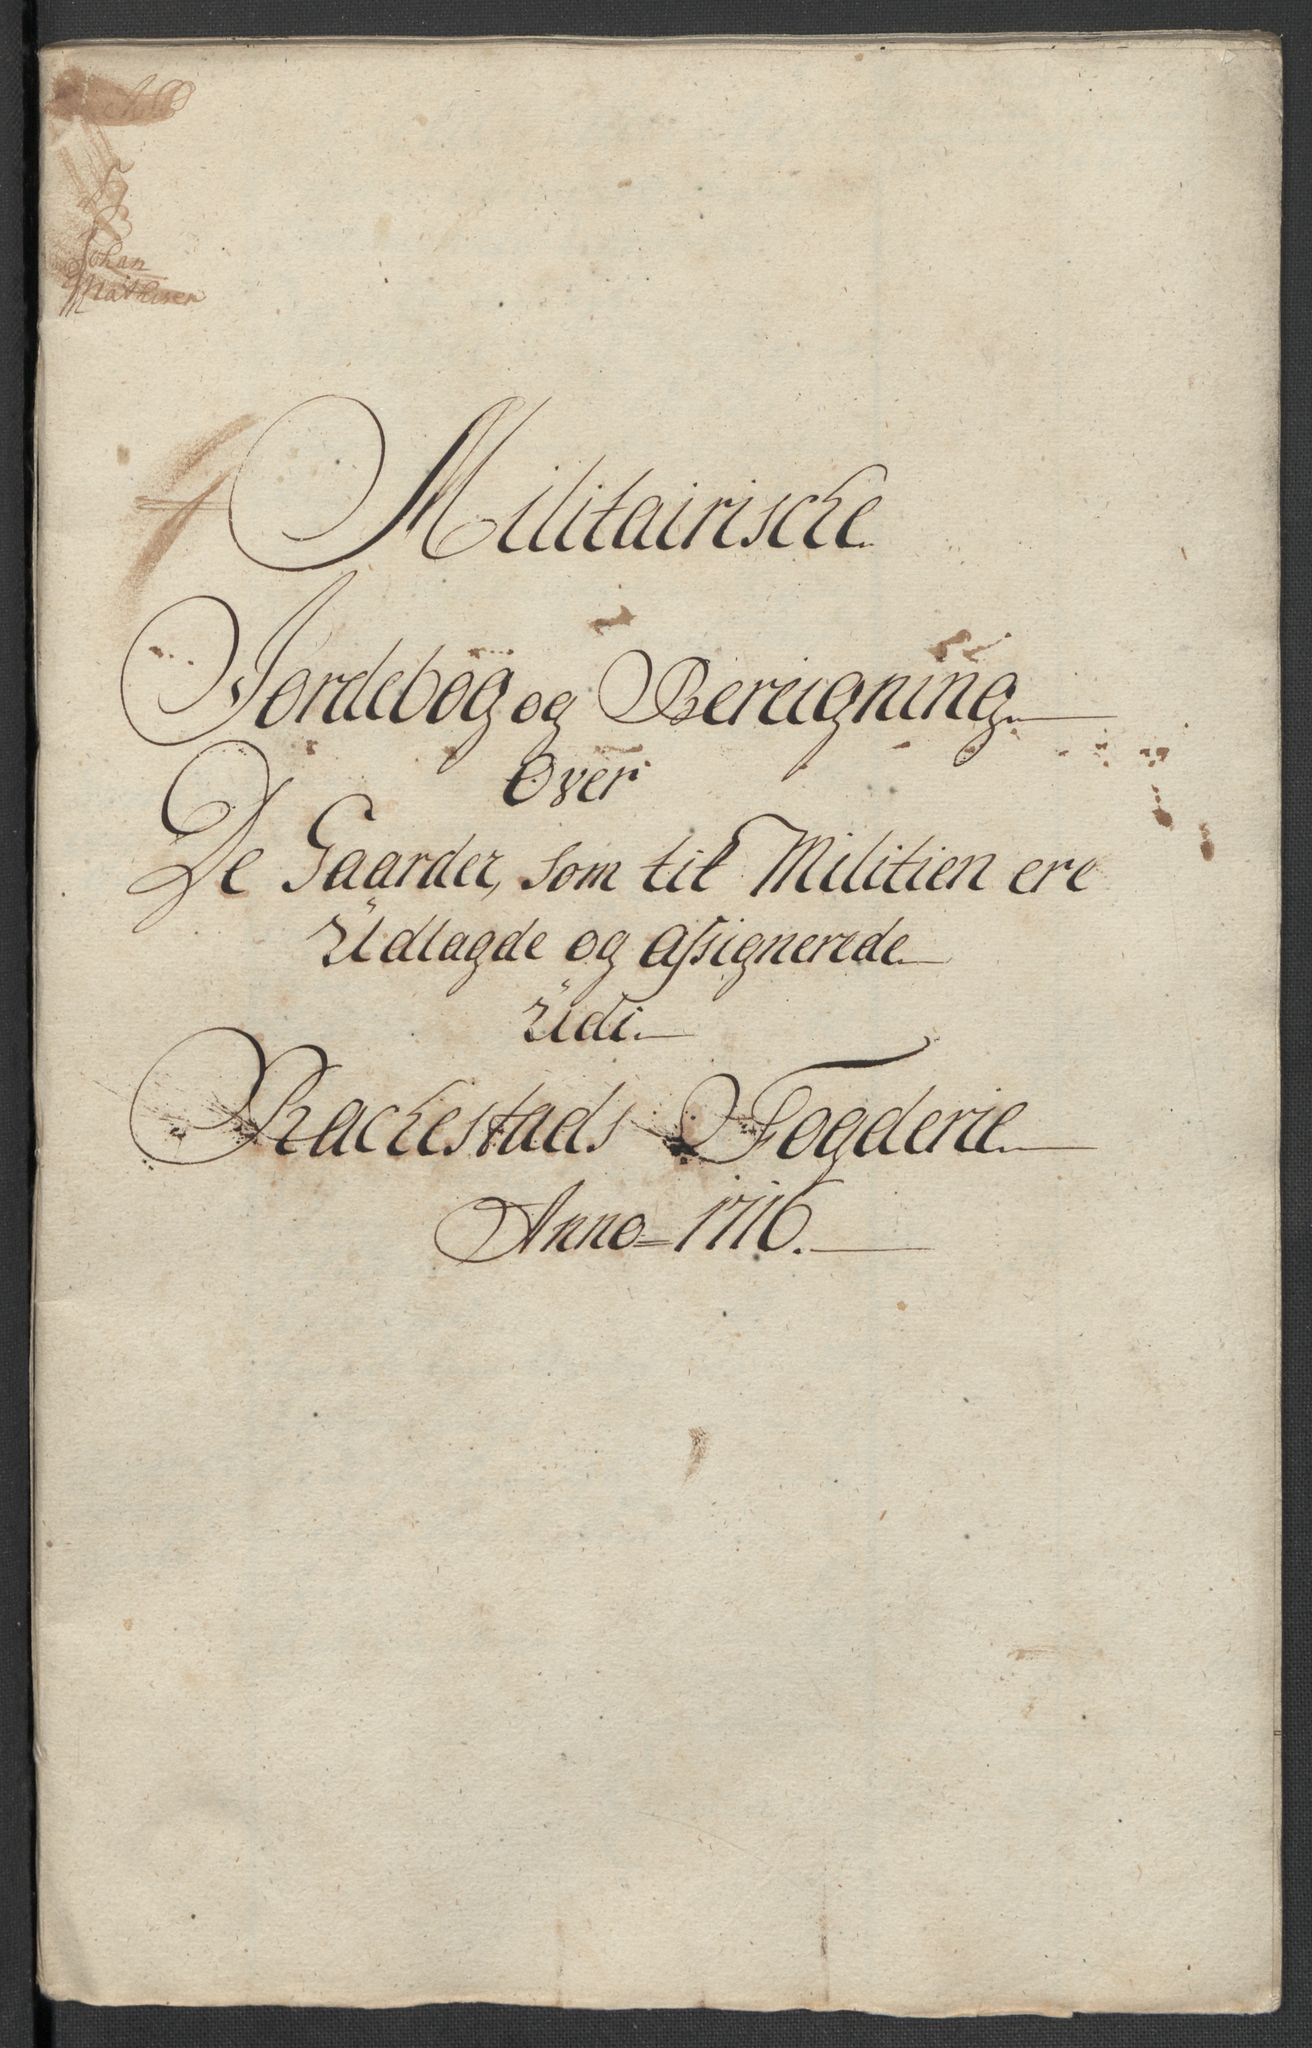 Johan
Mathisen
Militairische
Jordebog og Bereigning
Over
De Gaarder, som til Militien ere
Udlagde og assignerede
Udi
Rackestads Fogderie
Anno = 1716.